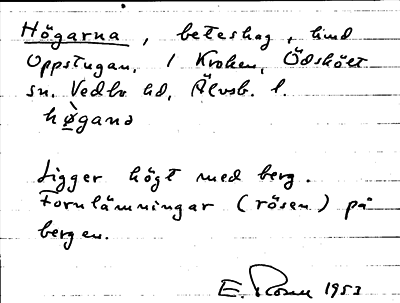 Högarna, beteshag, hmd
Uppstugan, 1 Kroken, Ödskölt
sn. Vedbo hd, Älvsb. l.
hø̀gana
Ligger högt med berg.
Fornlämningar (rösen) på
bergen.
E. 1953